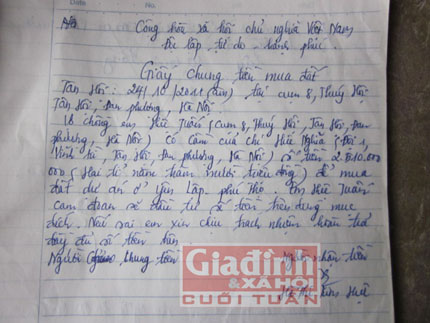 Date
No
Cộng hòa xã hội chủ nghĩa Việt Nam
Độc lập tự do - hạnh phúc.
Giấy chung tiền mua đất
Tân Hội: 24/10/2011 (âm) tại cụm 8, Thuý Hội
Tân Hội, Đan phượng, Hà Nội
Vợ chồng em Huê Tuấn (cụm 8, Thuý Hội, Tân Hội, Đan
phượng, Hà Nội) có cầm của chị Huê Nghĩa (Đội 1,
Vĩnh kỳ, Tân Hội, Đan phượng, Hà Nội) số tiền 2.510.000
000 (Hai tỉ năm trăm mười triệu đồng) để mua
đất dự án ở Yên lập phú thọ. Em Huê Tuấn
cam đoan sẽ đầu tư số tiền trên đúng mục
đích. Nếu sai em xin chịu trách nhiệm hoàn trả
đầy đủ số tiền trên
Người chung tiền
Người nhận tiền
Huê
Gia đình
& XÃ HỘI
CUỐI TUẦN